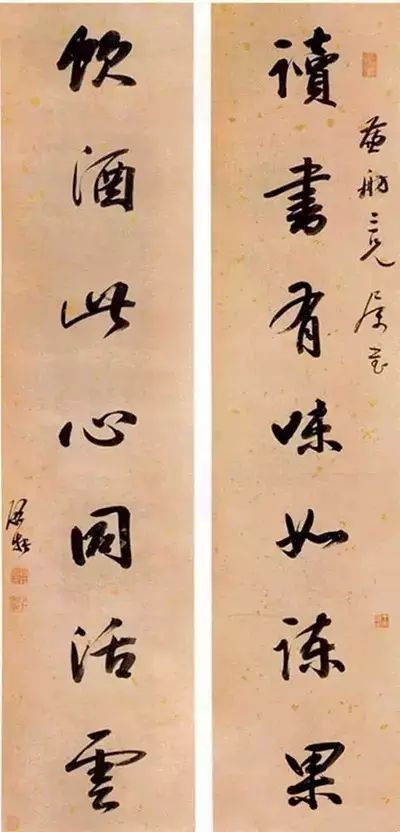 舫三兄屬
讀書有味如諫果
飲酒此心同活雲